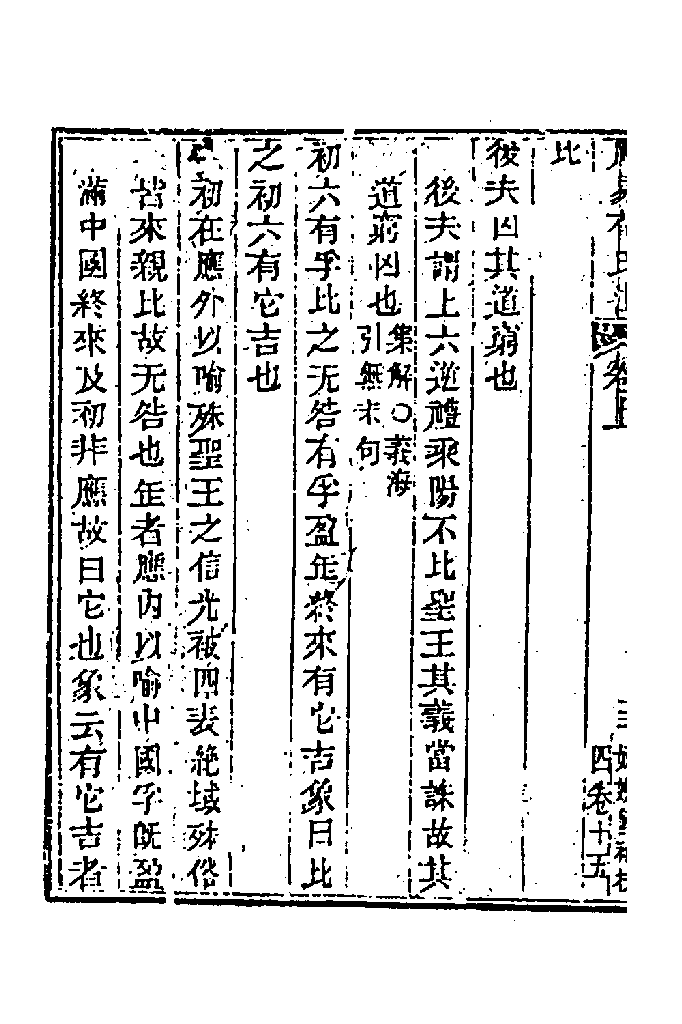 比
後夫凶其道窮也
後夫謂上六逆禮乘陽不比聖王其義當誅故其
道窮凶也集解○義海
引無末句
初六有孚比之无咎有孚盈缶終來有它吉象曰比
之初六有它吉也
初在應外以喻殊聖王之信光被四表絶域殊俗
皆來親比故无咎也缶者應內以喻中國孚旣盈
滿中國終來及初非應故曰它也象云有它吉者
四卷十五